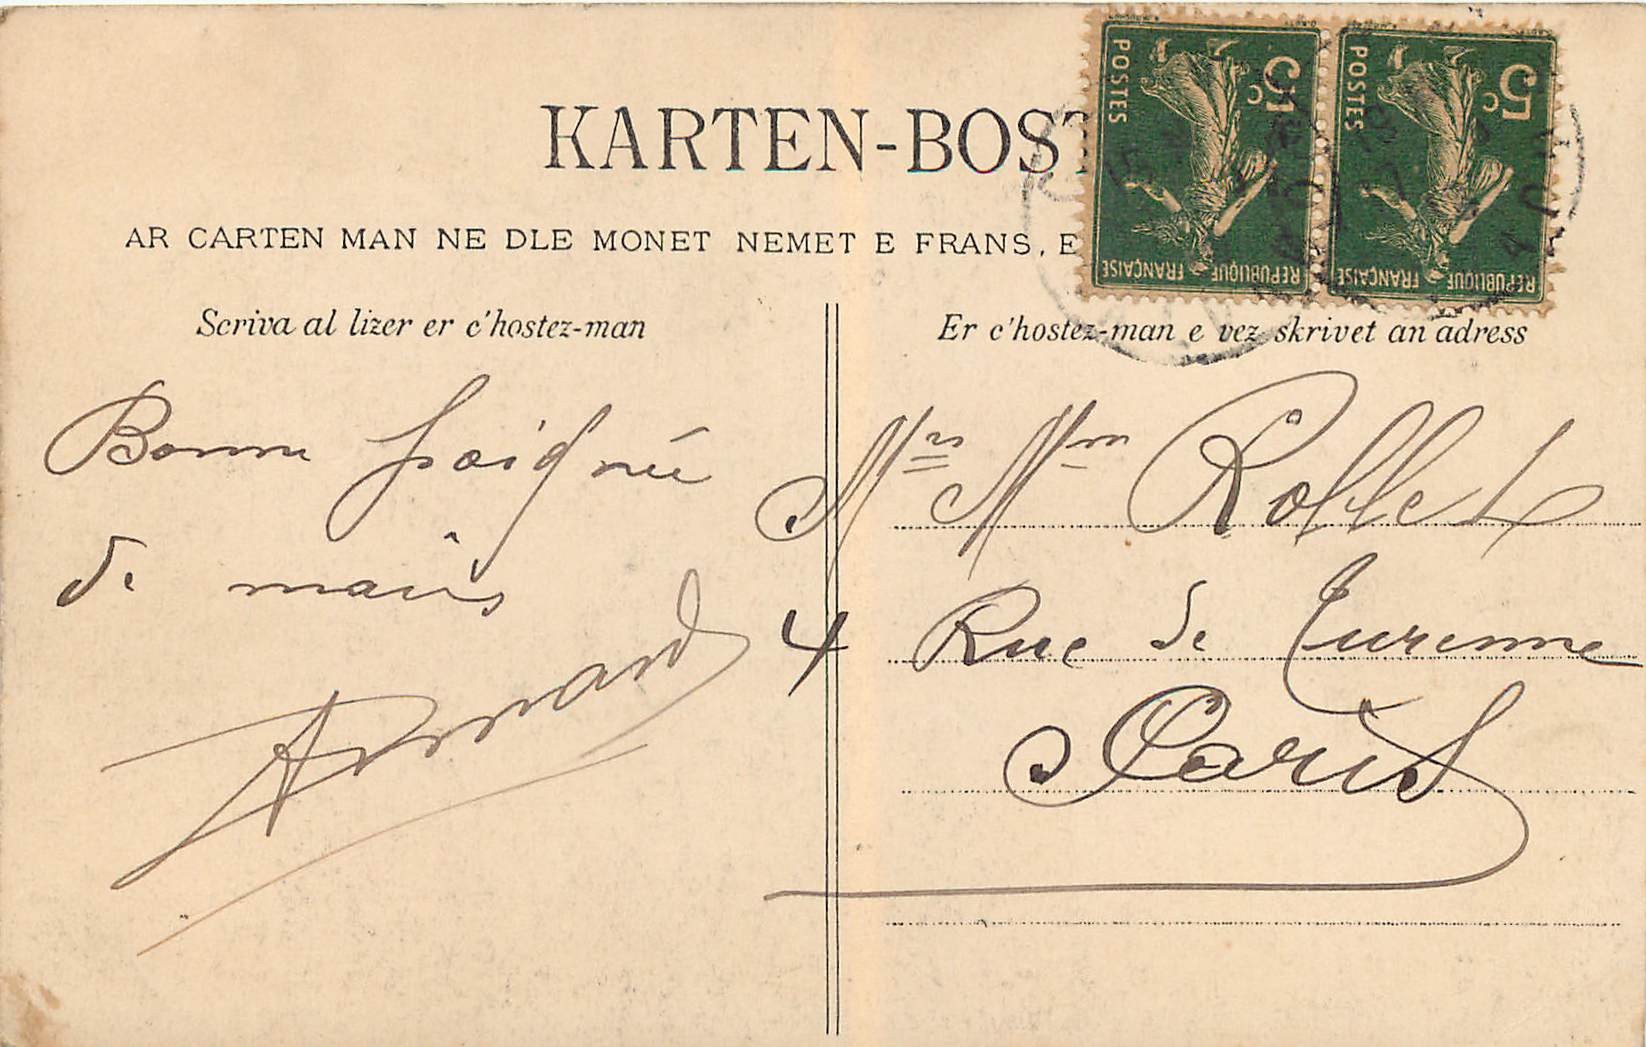 KARTEN-BOST
AR CARTEN MAN NE DLE MONET NEMET E FRANS, E
5c
POSTES
REPUBLIQUE FRANÇAISE
5c
POSTES
REPUBLIQUE FRANÇAISE
Scriva al lizer er c'hostez-man
Bonne poignée
de mains
Armand
Er c'hostez-man e vez skrivet an adress
Mr Mm Rollet
4 Rue de Turenne
Paris